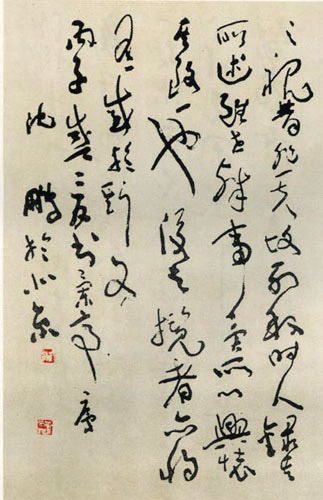 之視昔悲夫故列敘時人錄其
所述雖世殊事異所以興懷
其致一也後之攬者亦将
有感於斯文
丙子 書蘭亭序
沈鵬於北京